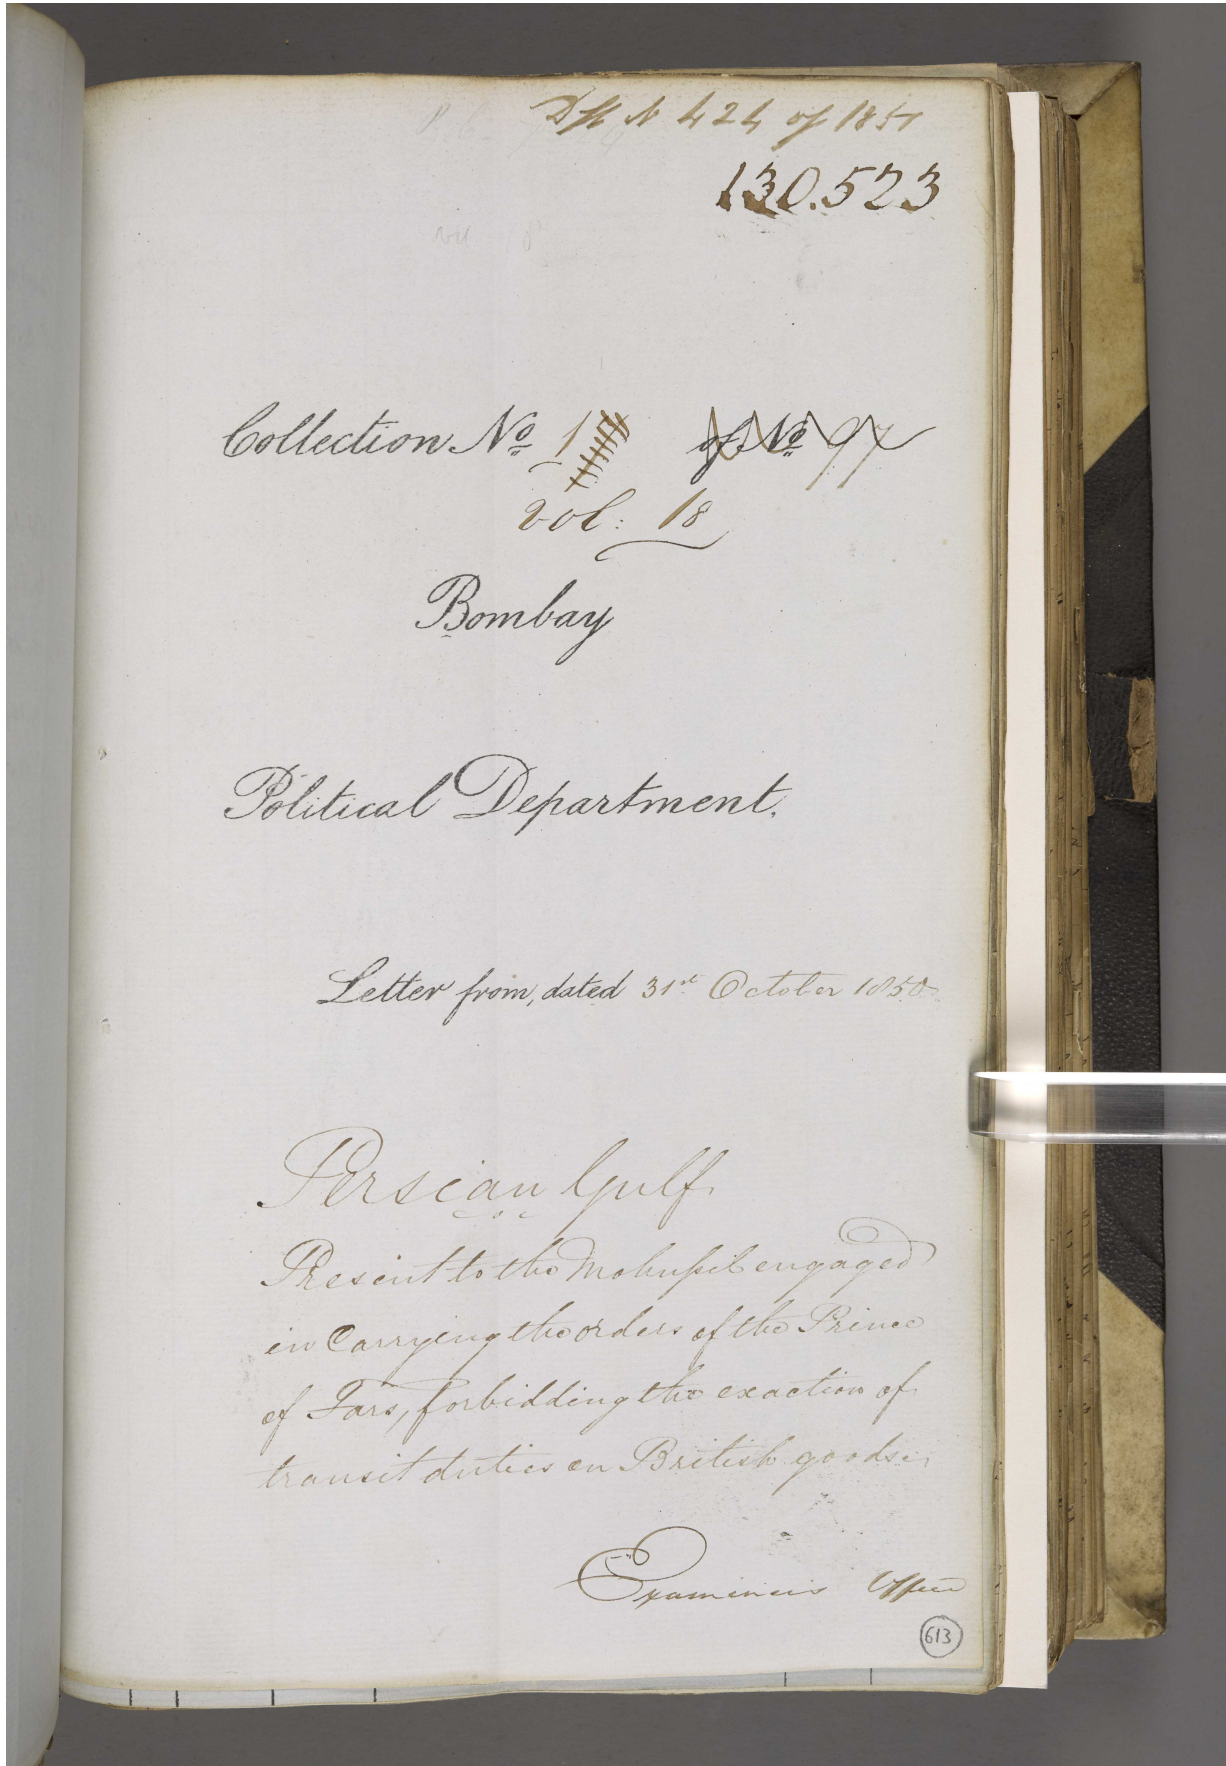 Dft N 424 of 1851
130.523
Collection No 1 of No 97
vol: 18
Bombay
Political Department.
Letter from, dated 31st October 1850
Persian Gulf.
Present to the Mohussil engaged
in Carrying the orders of the Prince
of Fars, forbidding the exaction of
transit duties on British goods.
Examiner's Office
613